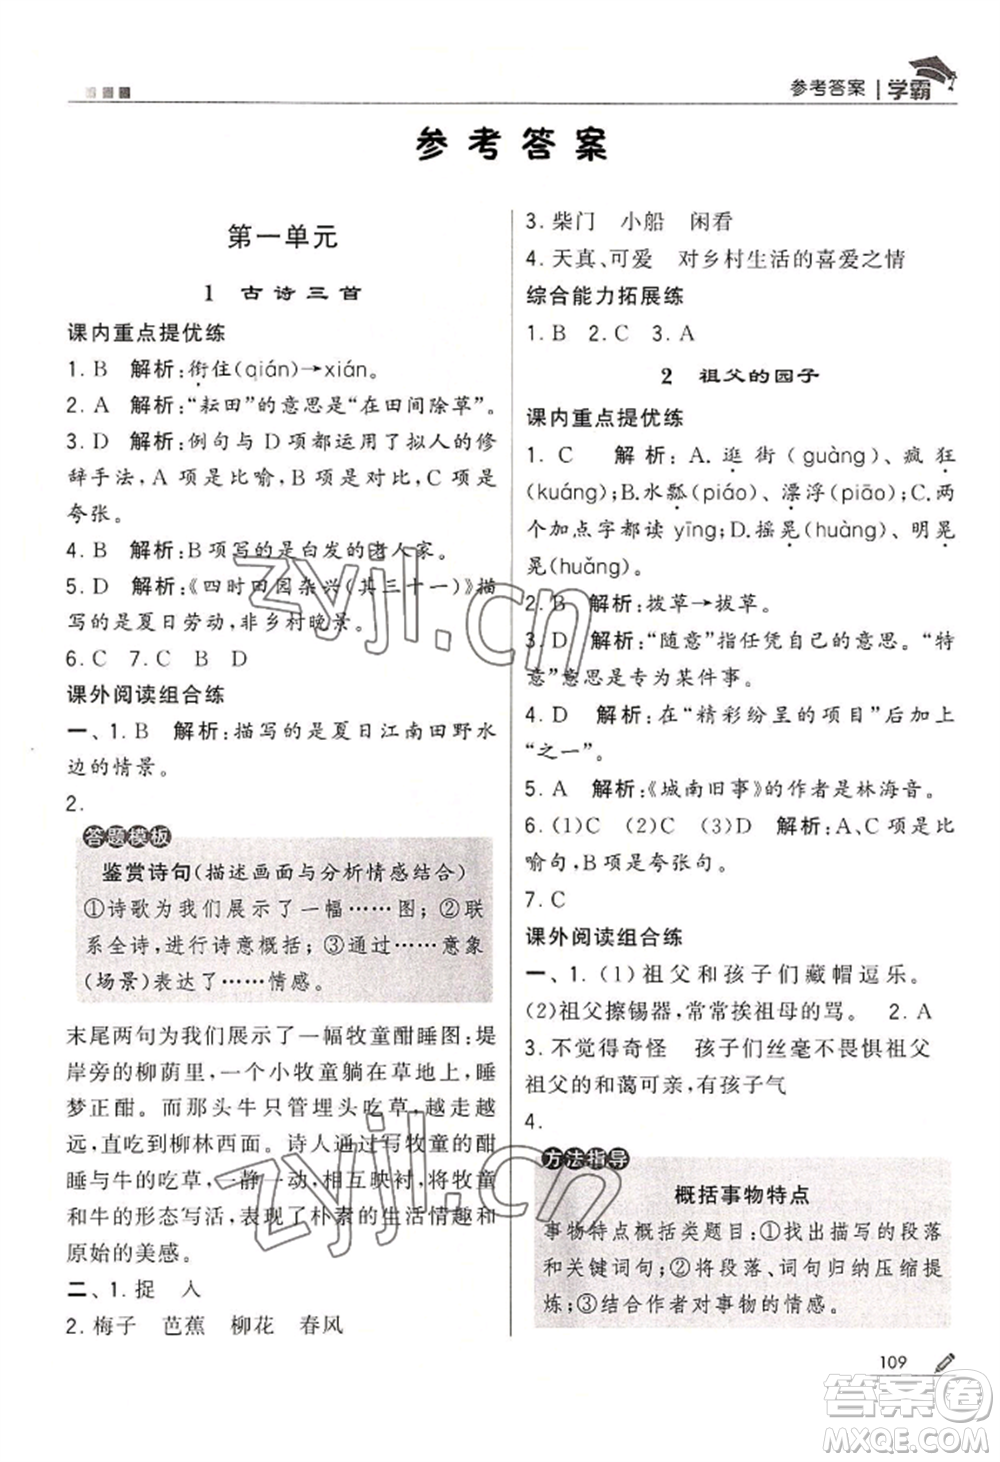 参考答案 学霸
参考答案
第一单元
1 古诗三首
课内重点提优练
1. B 解析:衔住(qián)→xián。
2. A 解析:“耘田”的意思是“在田间除草”。
3. D 解析:例句与 D 项都运用了拟人的修
辞手法,A 项是比喻,B 项是对比,C 项是
夸张。
4. B 解析:B 项写的是白发的老人家。
5. D 解析:《四时田园杂兴(其三十一)》描
写的是夏日劳动,非乡村晚景。
6. C 7. C B D
课外阅读组合练
一、1. B 解析:描写的是夏日江南田野水
边的情景。
2.
答题模板
鉴赏诗句(描述画面与分析情感结合)
①诗歌为我们展示了一幅……图;②联
系全诗,进行诗意概括;③通过……意象
(场景)表达了……情感。
末尾两句为我们展示了一幅牧童酣睡图:堤
岸旁的柳荫里,一个小牧童躺在草地上,睡
梦正酣。而那头牛只管埋头吃草,越走越
远,直吃到柳林西面。诗人通过写牧童的酣
睡与牛的吃草,一静一动,相互映衬,将牧童
和牛的形态写活,表现了朴素的生活情趣和
原始的美感。
二、1. 捉 入
2. 梅子 芭蕉 柳花 春风
3. 柴门 小船 闲看
4. 天真、可爱 对乡村生活的喜爱之情
综合能力拓展练
1. B 2. C 3. A
2 祖父的园子
课内重点提优练
1. C 解析:A. 逛街(guàng),疯狂
(kuáng);B. 水瓢(piáo)、漂浮(piāo);C. 两
个加点字都读 yīng;D. 摇晃(huàng)、明晃
晃(huǎng)。
2. B 解析:拨草→拔草。
3. D 解析:“随意”指任凭自己的意思。“特
意”意思是专为某件事。
4. D 解析:在“精彩纷呈的项目”后加上
“之一”。
5. A 解析:《城南旧事》的作者是林海音。
6. (1)C (2)C (3)D 解析:A、C 项是比
喻句,B 项是夸张句。
7. C
课外阅读组合练
一、1. (1)祖父和孩子们藏帽逗乐。
(2)祖父擦锡器,常常挨祖母的骂。 2. A
3. 不觉得奇怪 孩子们丝毫不畏惧祖父
祖父的和蔼可亲,有孩子气
4.
方法指导
概括事物特点
事物特点概括类题目:①找出描写的段落
和关键词句;②将段落、词句归纳压缩提
炼;③结合作者对事物的情感。
109
zyjl.cn
zyjl.cn
答案卷
MXQE.COM